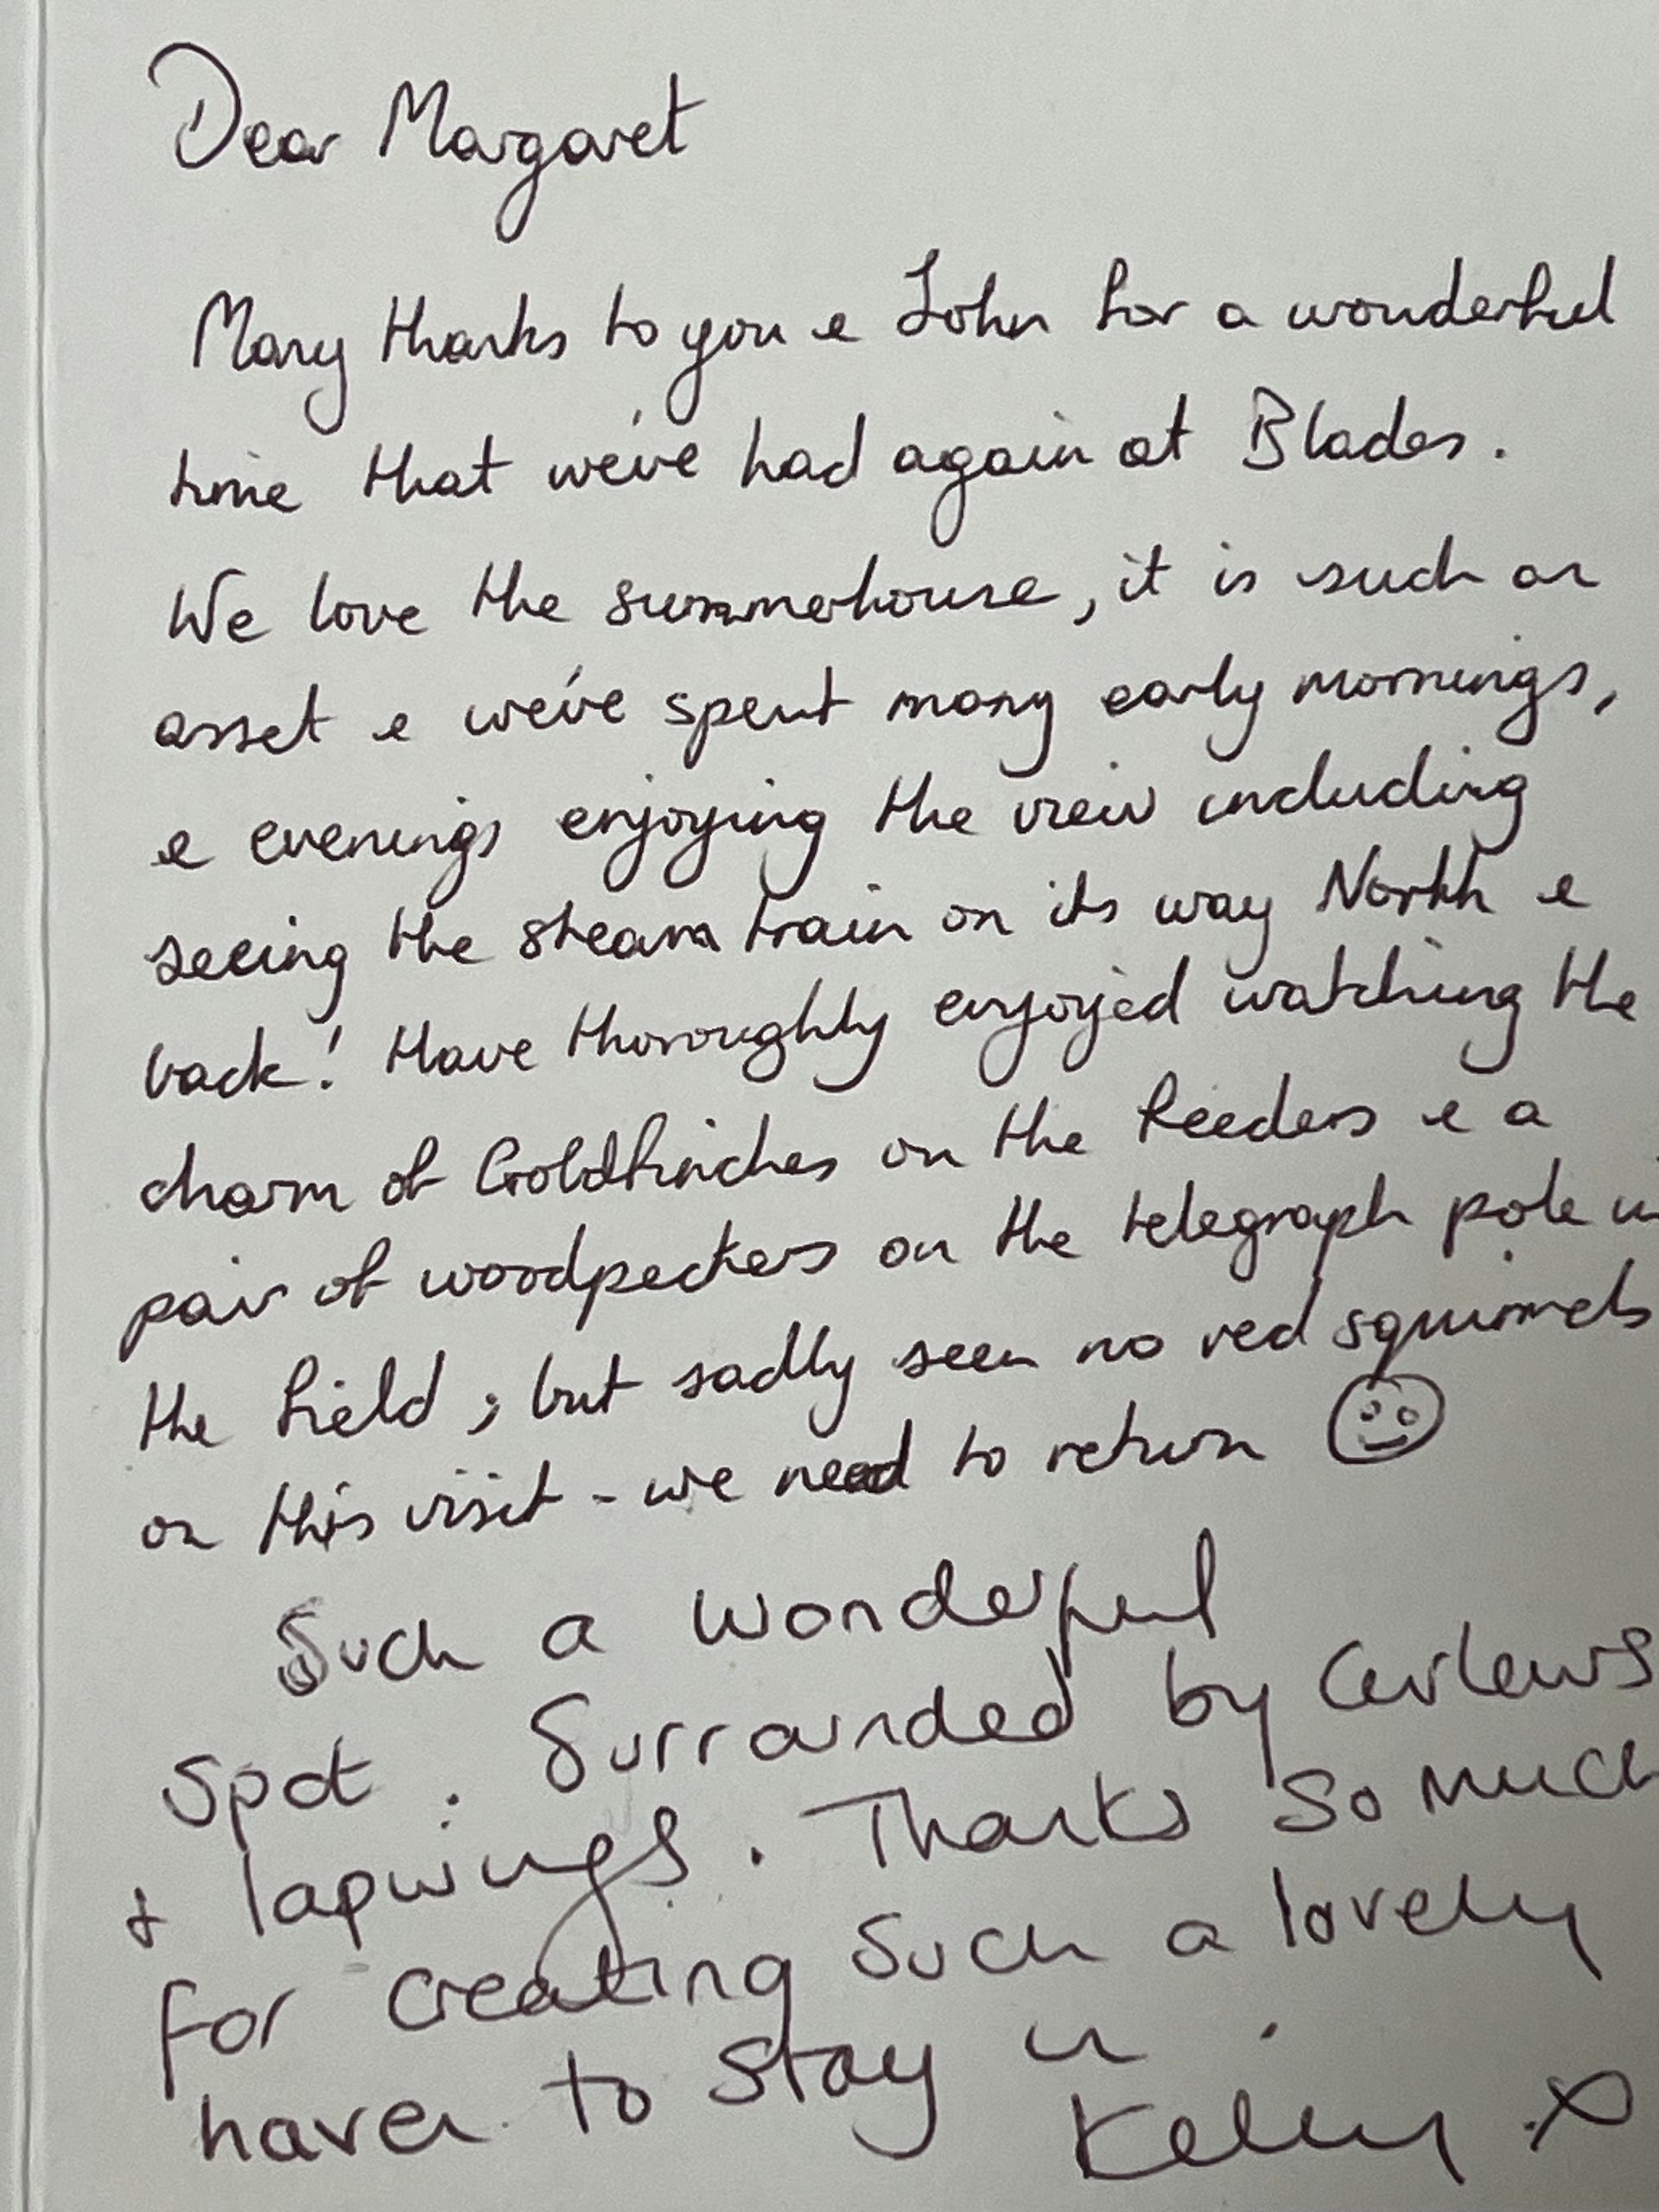 Dear Margaret
Many thanks to you & John for a wonderful
time that we've had again at Blades.
We love the summerhouse, it is such an
asset & we've spent many early mornings,
& evenings enjoying the view including
seeing the steam train on its way North &
back! Have thoroughly enjoyed watching the
charm of Goldfinches on the feeders & a
pair of woodpeckers on the telegraph pole in
the field; but sadly seen no red squirrels
on this visit - we need to return ☺
Such a wonderful
spot. Surrounded by Curlews
& lapwings. Thanks so much
for creating such a lovely
haven to stay in.
Kelly x